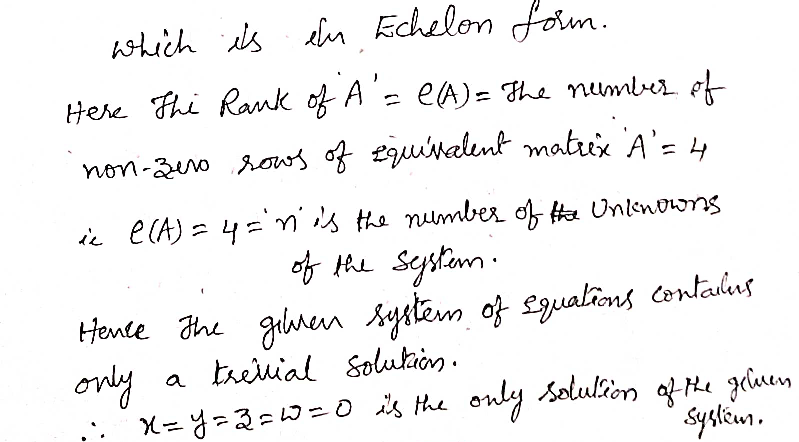 which is in Echelon form.
Here The Rank of 'A' = ρ(A) = The number of
non-zero rows of equivalent matrix 'A' = 4
ie ρ(A) = 4 = 'n' is the number of Unknowns
of the system.
Hence The given system of equations contains
only a trivial solution.
∴ x = y = z = w = 0 is the only solution of the given
system.